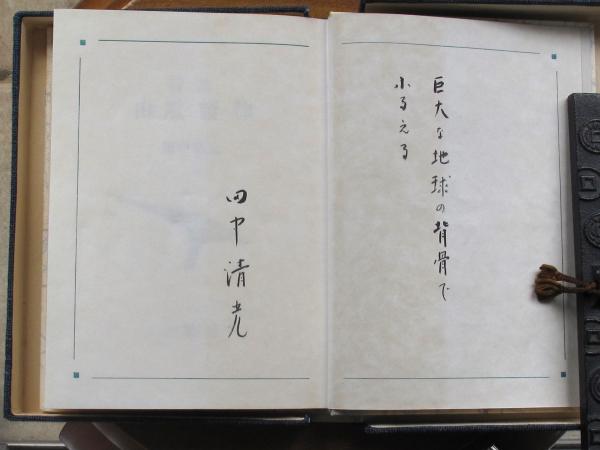 巨大な地球の背骨で
ふるえる
田中清光